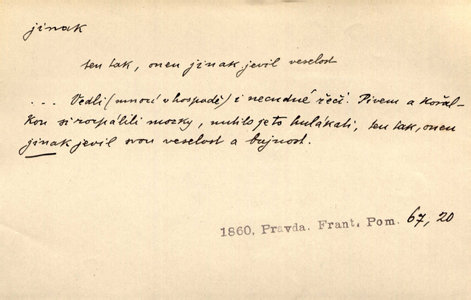 jinak
ten tak, onen jinak jevil veselost
... Vedli (mnozí v hospodě) i necudné řeči. Pivem a kořal-
kou si rozpálili mozky, nutilo je to hulákati, ten tak, onen
jinak jevil svou veselost a bujnost.
1860, Pravda. Frant. Pom. 67, 20